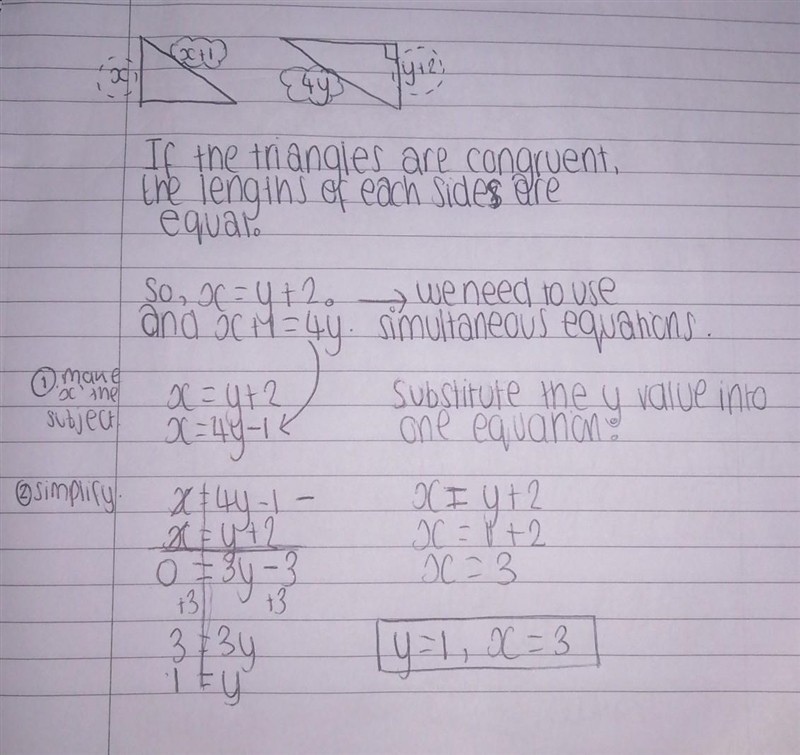 x x+1 4y y+2
If the triangles are congruent,
the lengths of each sides are
equal.
So, x=y+2. → we need to use
and x+1=4y. simultaneous equations.
① make
x the
subject
x=y+2
x=4y-1
substitute the y value into
one equation:
② simplify.
x=4y-1 -
x=y+2
0=3y-3
+3 +3
3=3y
1=y
x=y+2
x=1+2
x=3
y=1, x=3